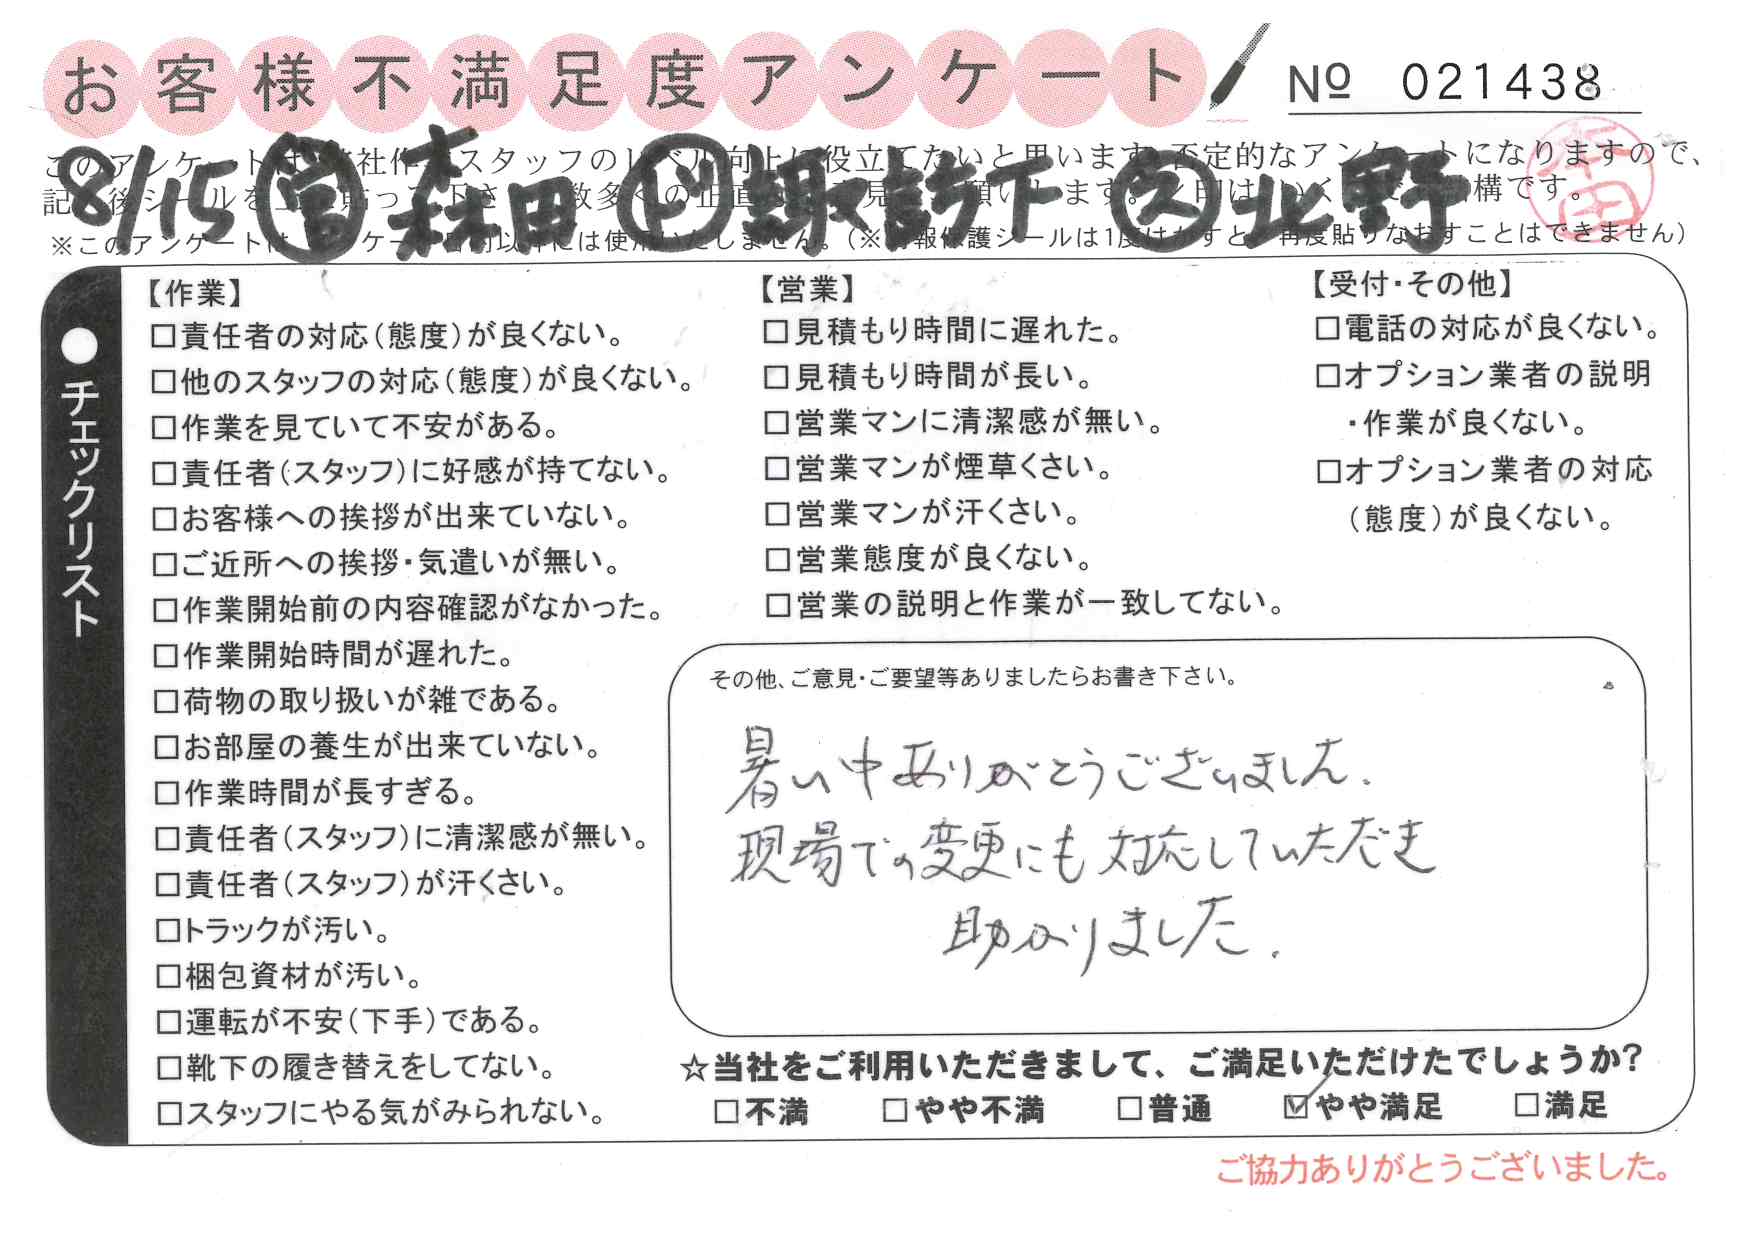 お客様不満足度アンケート
Nº 021438
8/15 営 森田 ド 諏訪下 久 北野
本田
※このアンケートは
報保護シールは1度はがすと、再度貼りなおすことはできません）
●チェックリスト
【作業】
□責任者の対応（態度）が良くない。
□他のスタッフの対応（態度）が良くない。
□作業を見ていて不安がある。
□責任者（スタッフ）に好感が持てない。
□お客様への挨拶が出来ていない。
□ご近所への挨拶・気遣いが無い。
□作業開始前の内容確認がなかった。
□作業開始時間が遅れた。
□荷物の取り扱いが雑である。
□お部屋の養生が出来ていない。
□作業時間が長すぎる。
□責任者（スタッフ）に清潔感が無い。
□責任者（スタッフ）が汗くさい。
□トラックが汚い。
□梱包資材が汚い。
□運転が不安（下手）である。
□靴下の履き替えをしてない。
□スタッフにやる気がみられない。
【営業】
□見積もり時間に遅れた。
□見積もり時間が長い。
□営業マンに清潔感が無い。
□営業マンが煙草くさい。
□営業マンが汗くさい。
□営業態度が良くない。
□営業の説明と作業が一致してない。
【受付・その他】
□電話の対応が良くない。
□オプション業者の説明
・作業が良くない。
□オプション業者の対応
（態度）が良くない。
その他、ご意見・ご要望等ありましたらお書き下さい。
暑い中ありがとうございました.
現場での変更にも対応していただき
助かりました.
☆当社をご利用いただきまして、ご満足いただけたでしょうか？
□不満 □やや不満 □普通 ☑やや満足 □満足
ご協力ありがとうございました。